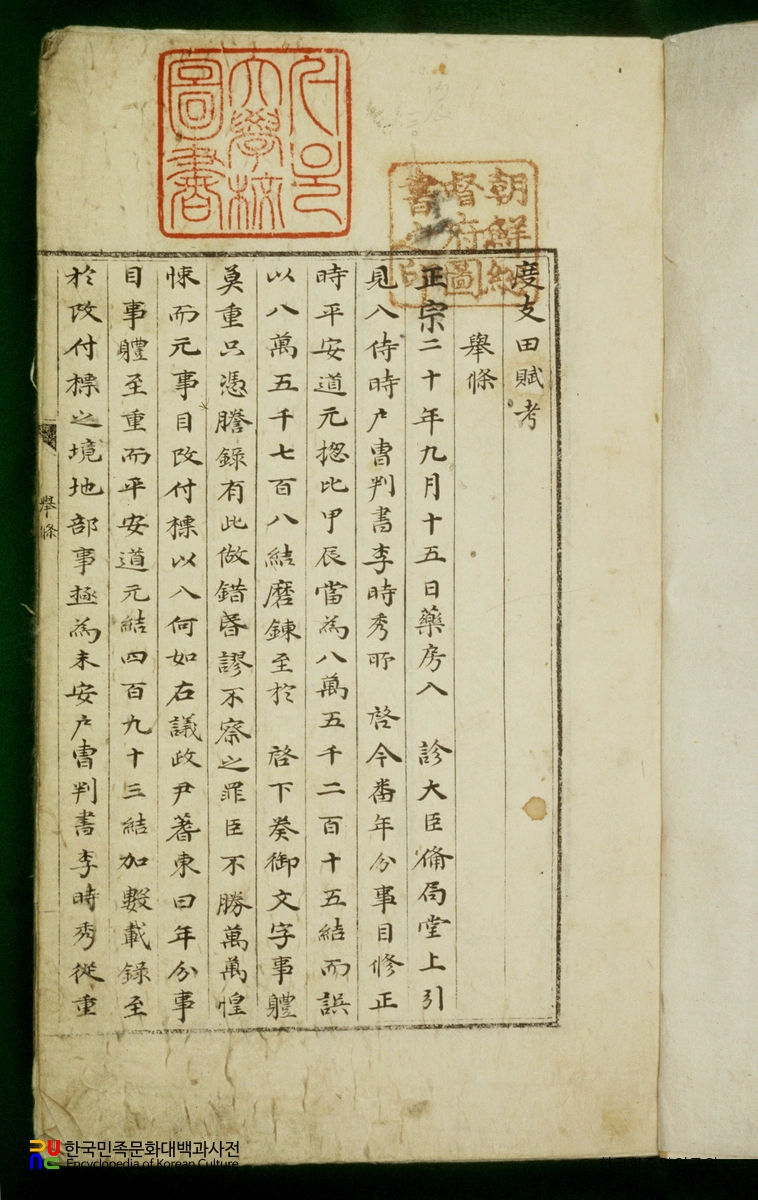 度支田賦考
擧條
正宗二十年九月十五日藥房入 診大臣備局堂上引
見入侍時户曺判書李時秀所 啓今番年分事目修正
時平安道元摠比甲辰當爲八萬五千二百十五結而誤
以八萬五千七百八結磨鍊至於 啓下癸御文字事軆
莫重只憑謄錄有此做錯昏謬不察之罪臣不勝萬萬惶
悚而元事目改付標以入何如右議政尹蓍東曰年分事
目事軆至重而平安道元結四百九十三結加數載錄至
於改付標之境地部事極爲未安户曺判書李時秀從重
擧條
朝鮮總
督府圖
書之印
大學校
圖書
한국민족문화대백과사전
Encyclopedia of Korean Culture